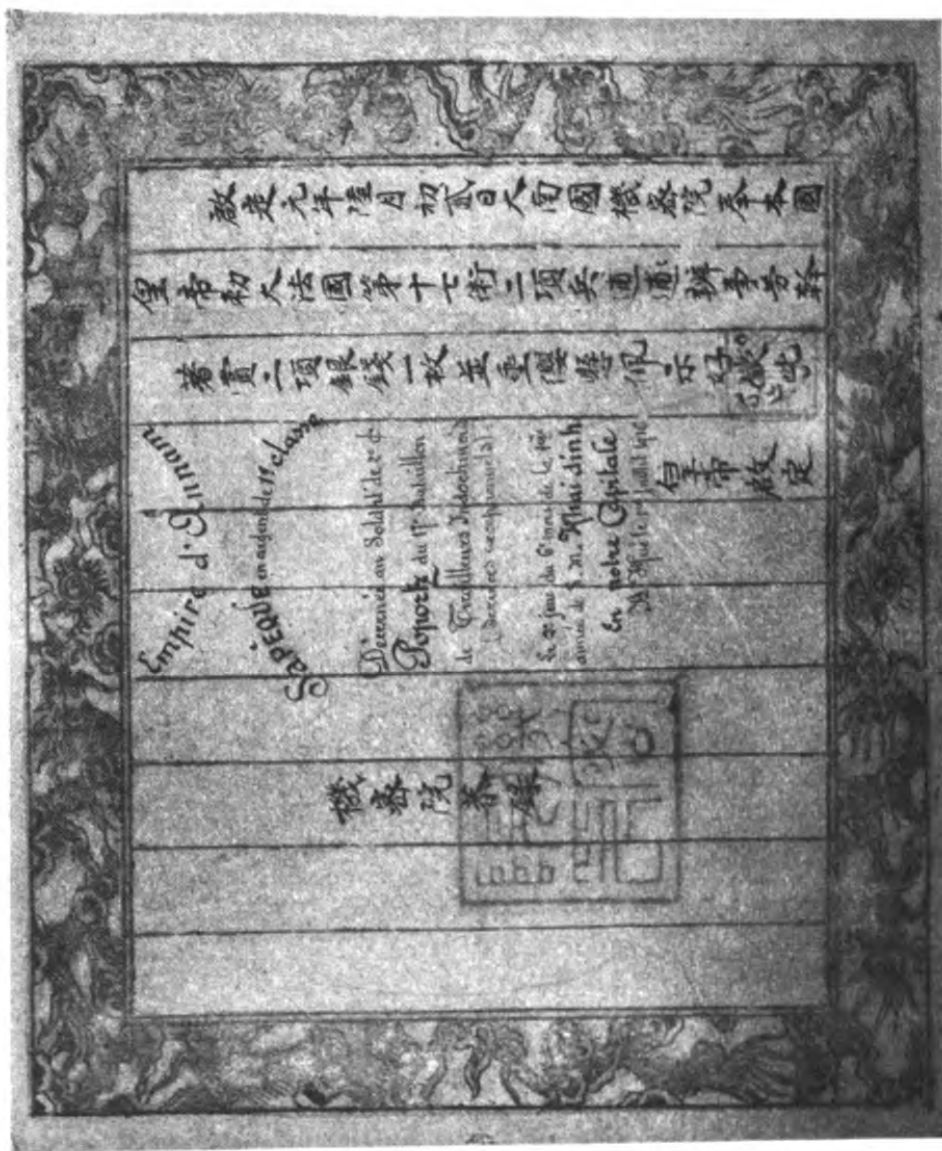 啟定元年陸月初貳日大南國機密院奉本國
皇帝敕大法國第十七衛二項兵逋逋辦事勞幹
著賞二項銀錢一枚並垂懸佩示好
皇帝啟定
Empire d'Annam
SaPEQUE en argent de 1re classe
Décernée au Soldat de 2e cl
du 17e Bataillon
de Tirailleurs Indochinois
(Services exceptionnels).
Le 2e jour du 6e mois de la 1ère
année de S. M. Khai dinh
En notre Capitale
A Hué le 1er juillet 1916
機密院恭錄